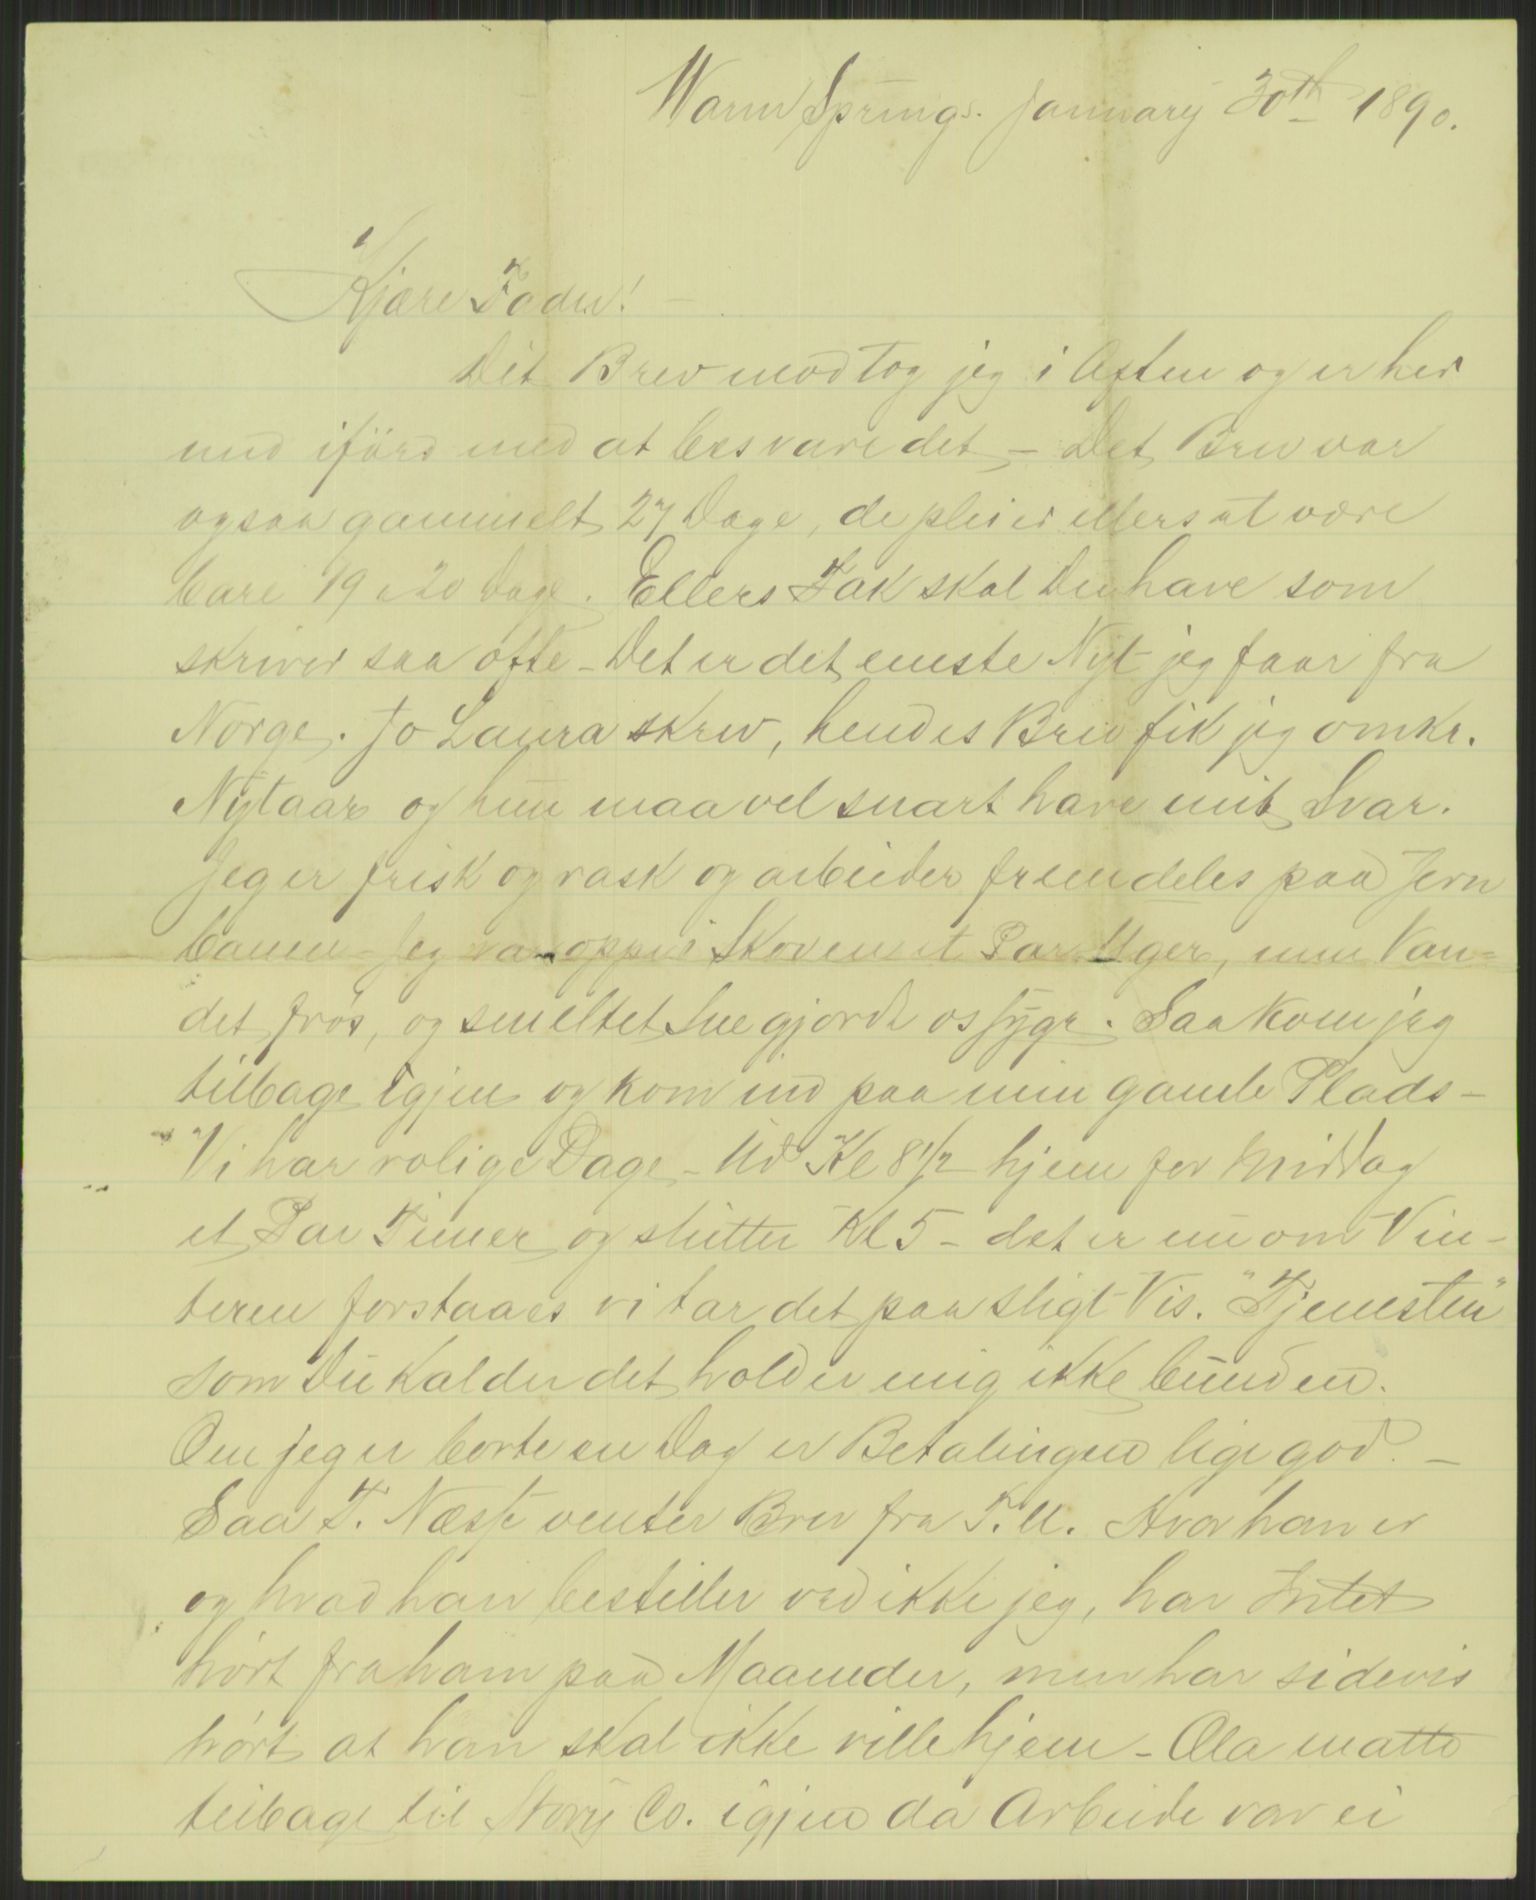 Warm Springs. January 30th 1890.
Kjære Fader!
Dit Brev modtog jeg i Aften og er her
med iførd med at besvare det – Det Brev var
ogsaa gammelt 27 Dage, de pleier ellers at være
bare 19 a 20 Dage. Ellers Tak skal Du have som
skriver saa ofte – Det er det eneste Nyt jeg faar fra
Norge. Jo Laura skrev, hendes Brev fik jeg omkr.
Nytaar og hun maa vel snart have mit Svar.
Jeg er frisk og rask og arbeider fremdeles paa Jern
banen – Jeg var oppe i Skoven et Par Uger, men Van=
det frøs, og smeltet Sne gjorde os syge. Saa kom jeg
tilbage igjen og kom ind paa min gamle Plads –
Vi har rolige Dage – Ud Kl 8 1/2 hjem for Middag
et Par Timer og slutter Kl 5 – det er nu om Vin–
teren forstaaes vi tar det paa sligt Vis. "Tjenesten"
som Du kalder det holder mig ikke bunden.
Om jeg er borte en Dag er Betalingen lige god. –
Saa T. Næss venter Brev fra T. U. Hvor han er
og hvad han bestiller ved ikke jeg, har Intet
hørt fra ham paa Maaneder, men har sidevis
hørt at han skal ikke ville hjem – Ola matte
tilbage til Story Co. igjen da Arbeide var ei